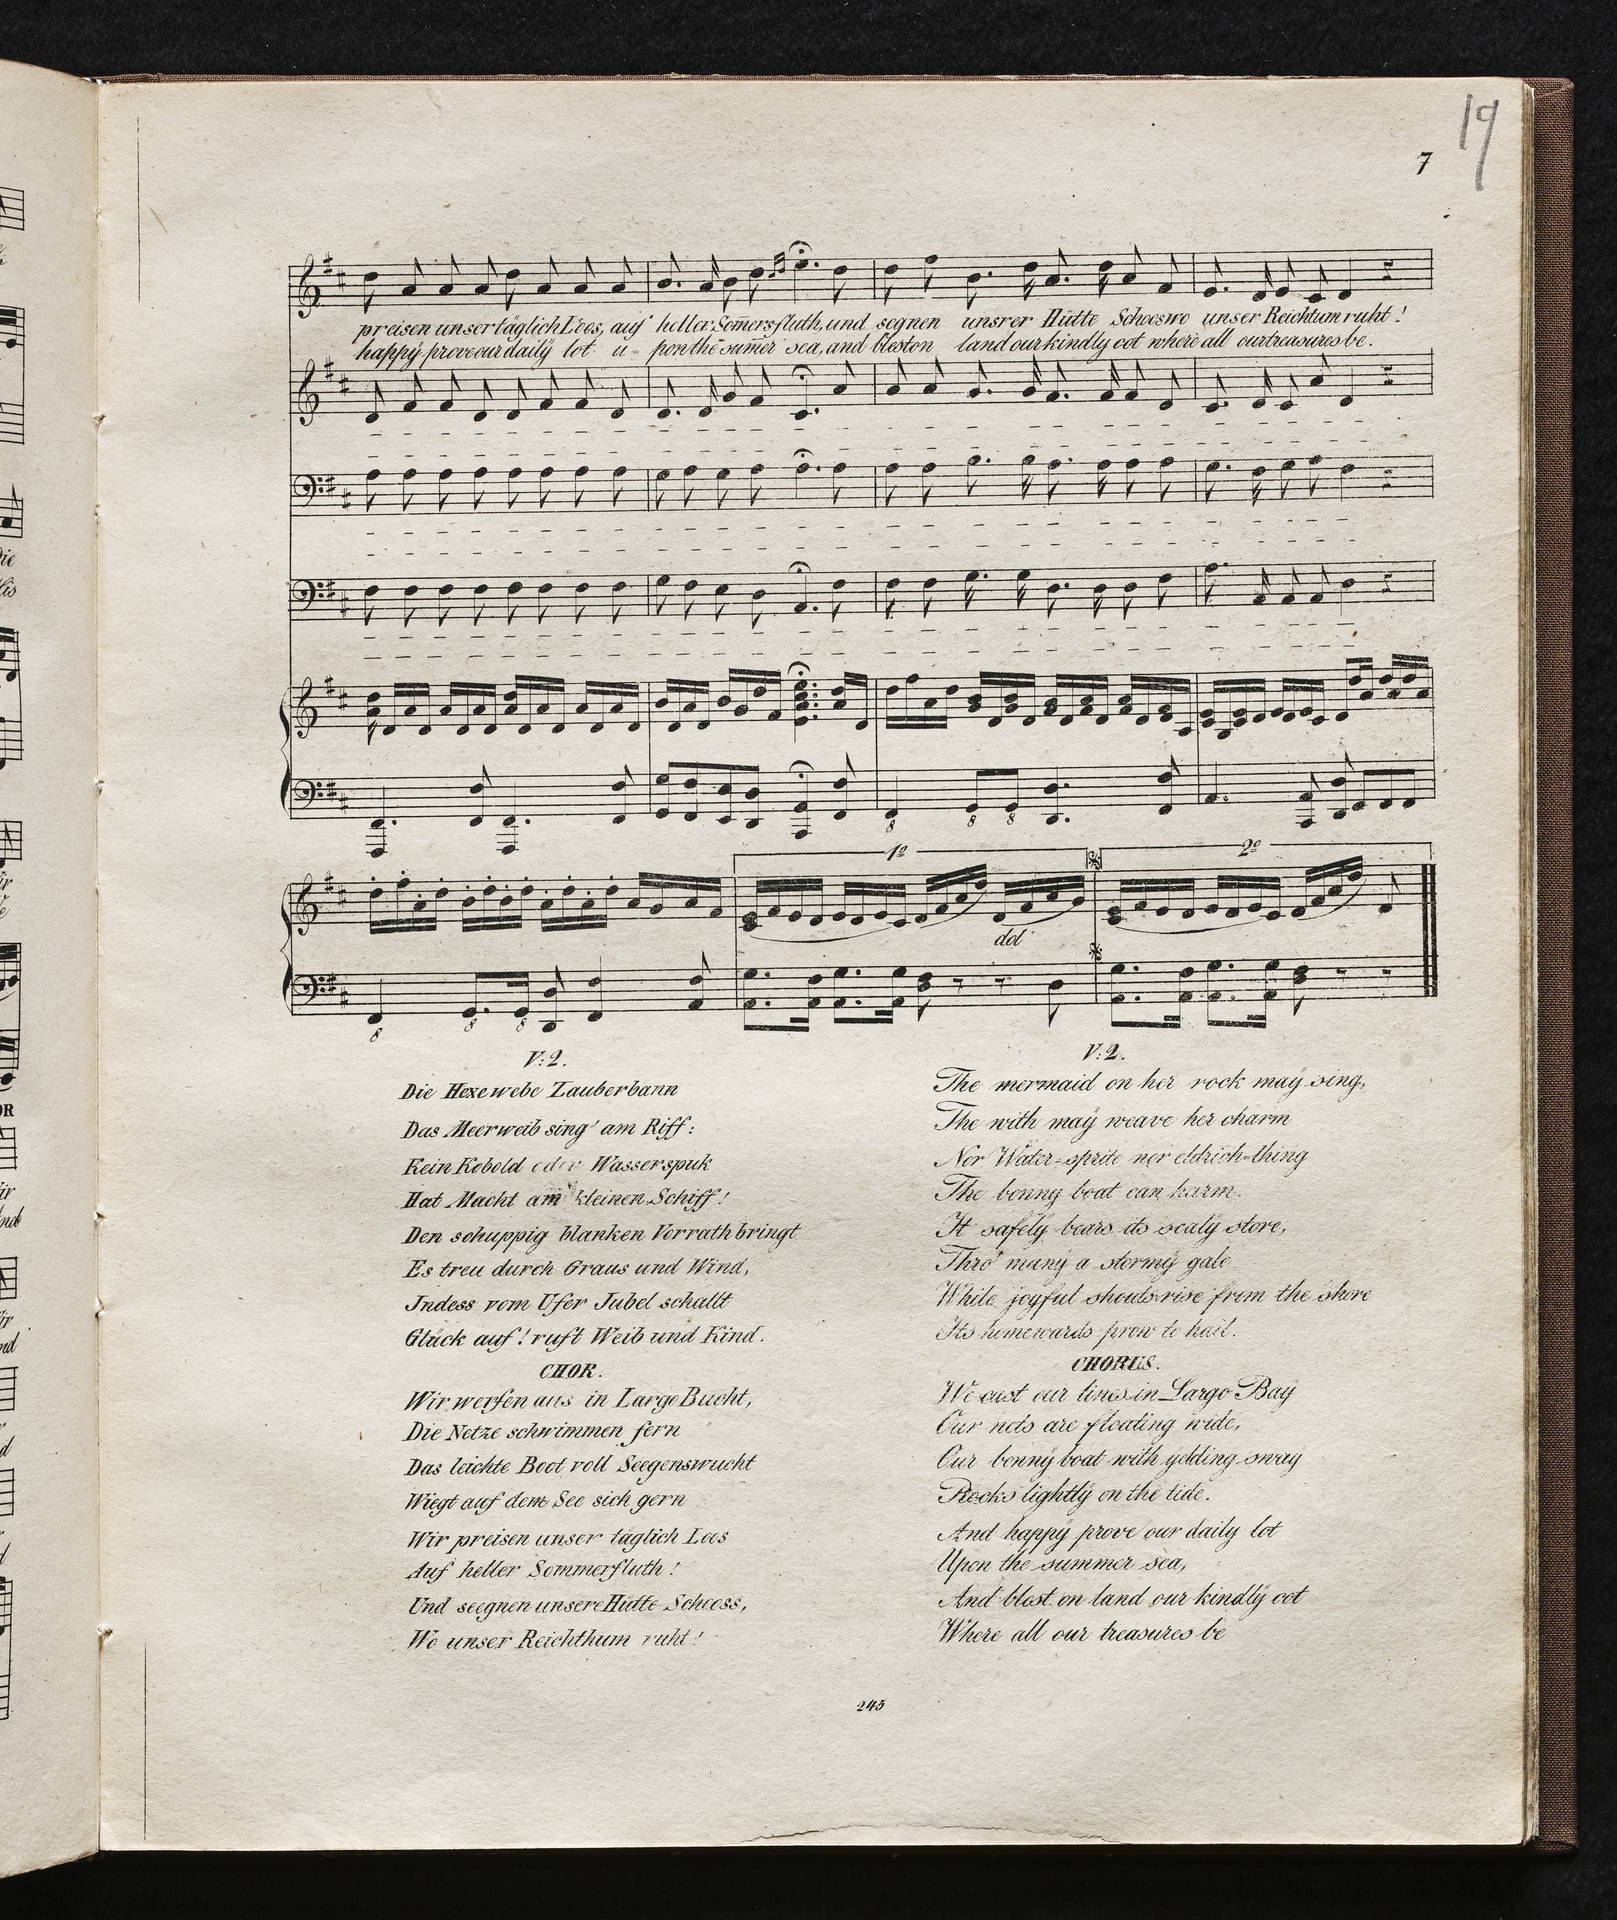 19
7
preisen unser täglich Loos, auf heller Som̅ersfluth, und segnen unsrer Hütte Schooswo unser Reichtum ruht!
happy prove our daily lot u-pon the sum̅er sea, and blest on land our kindly cot where all our treasures be.
8 8 8
1º 2º
dol
8 8 8
V:2.
Die Hexe webe Zauberbann
Das Meerweib sing' am Riff:
Kein Kobold oder Wasserspuk
Hat Macht am kleinen Schiff!
Den schuppig blanken Vorrath bringt
Es treu durch Graus und Wind,
Indess vom Ufer Jubel schallt
Glück auf! ruft Weib und Kind.
CHOR.
Wir werfen aus in Largo Bucht,
Die Netze schwimmen fern
Das leichte Boot voll Seegenswucht
Wiegt auf dem See sich gern
Wir preisen unser täglich Loos
Auf heller Sommerfluth!
Und seegnen unsere Hütte Schooss,
Wo unser Reichthum ruht!
V:2.
The mermaid on her rock may sing,
The with may weave her charm
Nor Water-sprite nor eldrich-thing
The bonny boat can harm.
It safely bears its scaly store,
Thro' many a stormy gale
While joyful shouts rise from the shore
Its homewards prow to hail.
CHORUS.
We cast our lines in Largo Bay
Our nets are floating wide,
Our bonny boat with yelding sway
Rocks lightly on the tide.
And happy prove our daily lot
Upon the summer sea,
And blest on land our kindly cot
Where all our treasures be
245